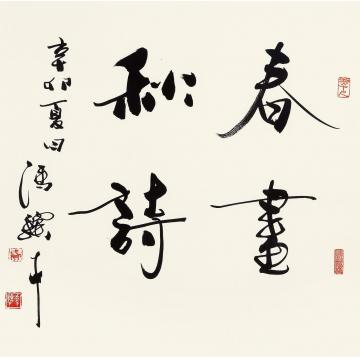 春畫
秋詩
辛卯夏日汪